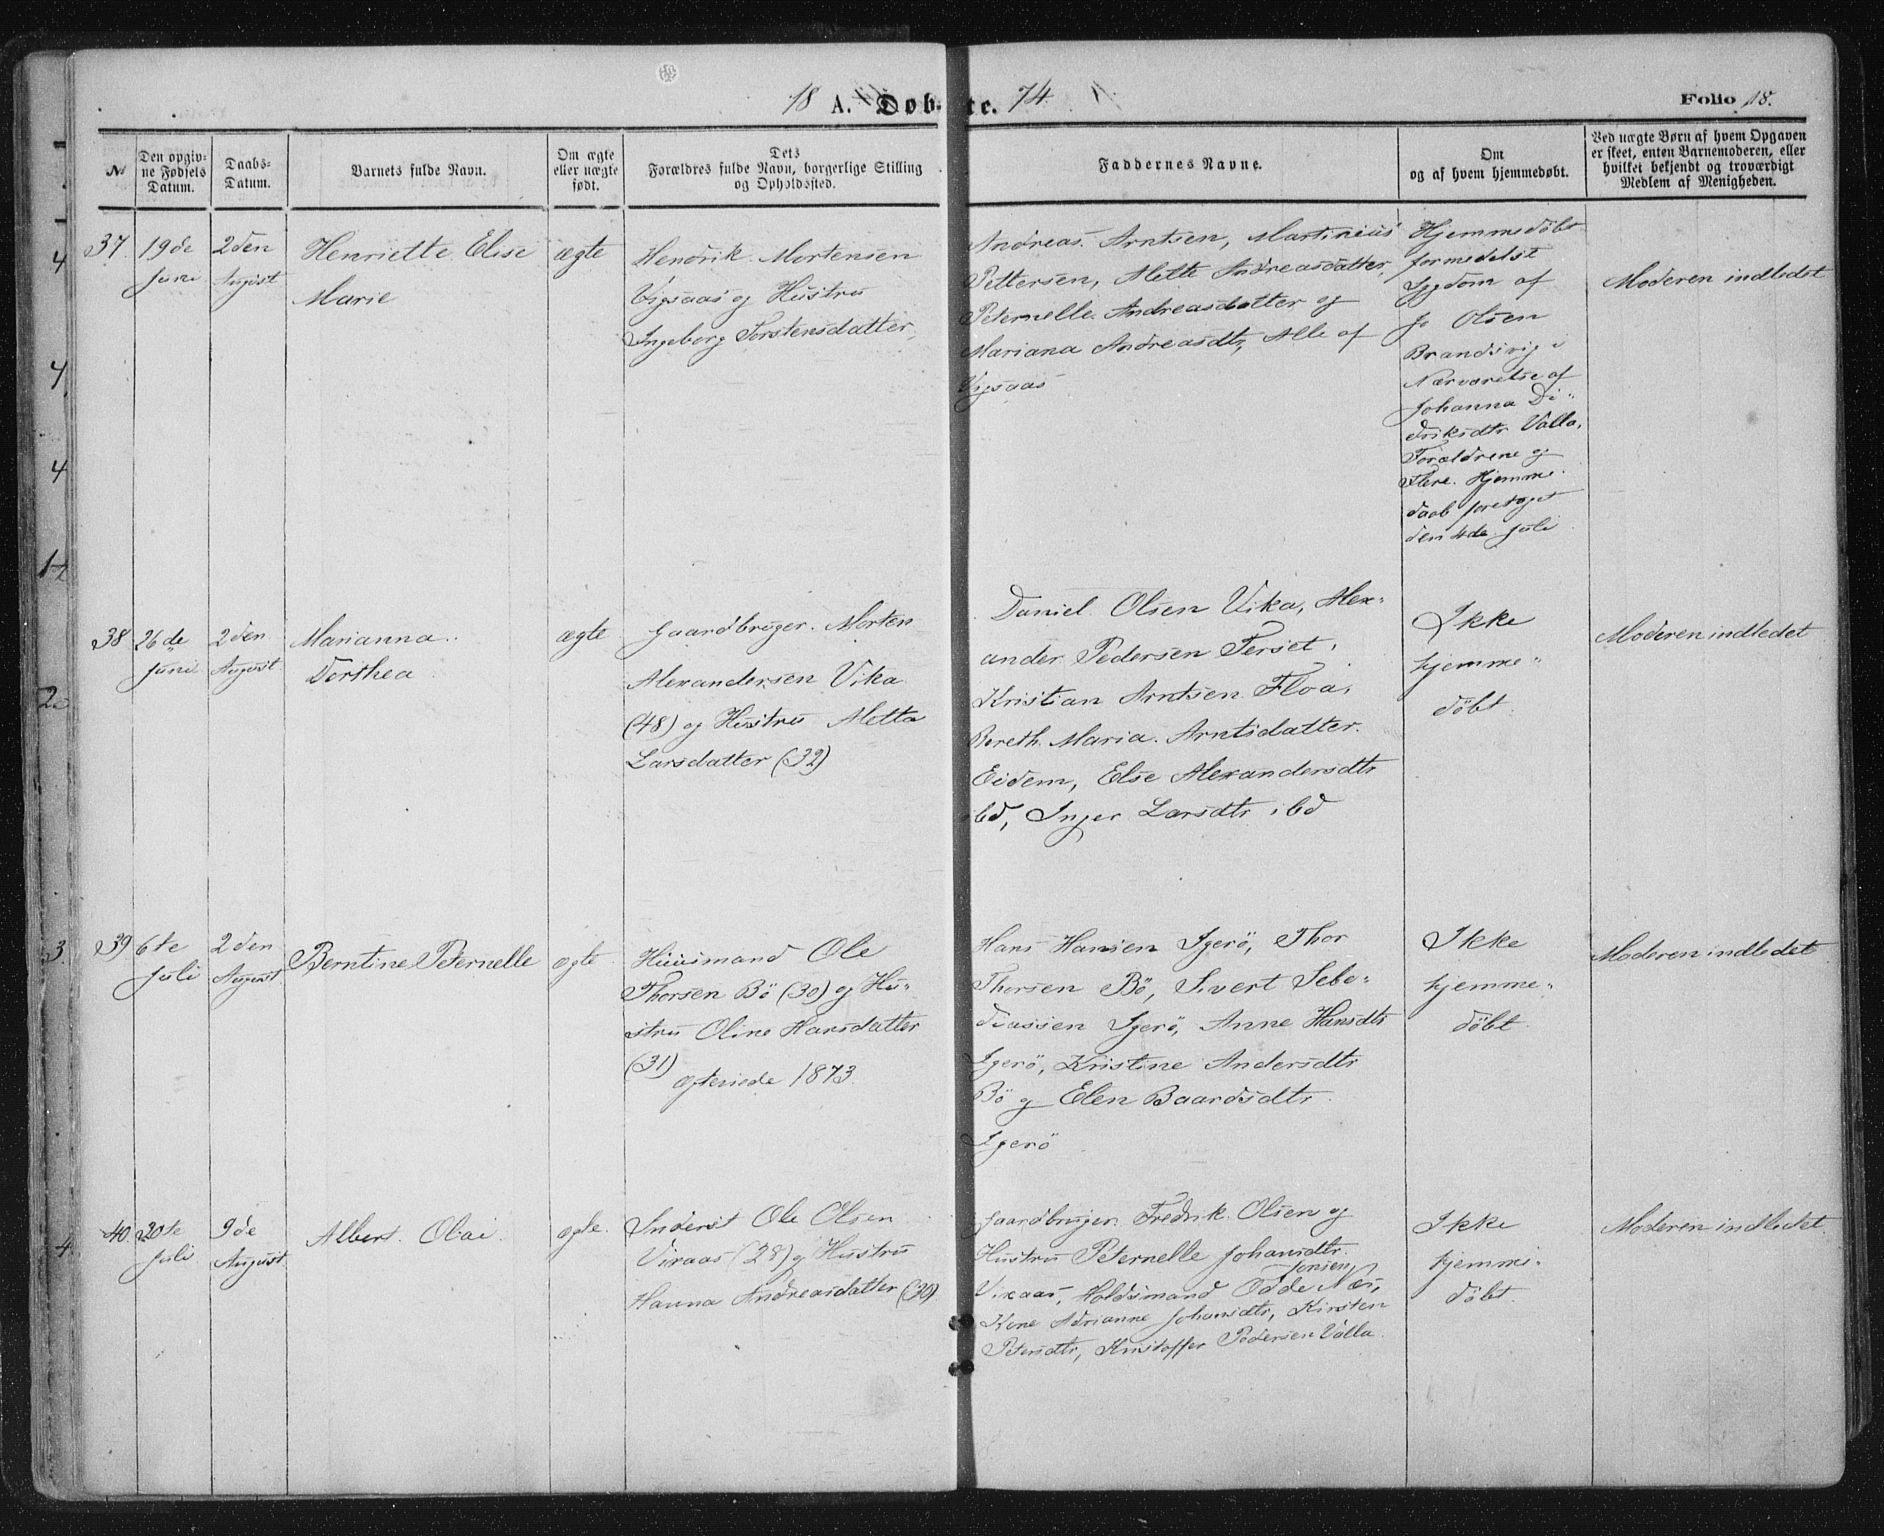 18 A. Døbte. 74.
Folio 18.
No
Den opgivne Fødsels Datum.
Daabs-Datum.
Barnets fulde Navn.
Om ægte eller uægte født.
Dets Forældres fulde Navn, borgerlige Stilling og Opholdssted.
Faddernes Navne.
Om og af hvem hjemmedøbt.
Ved uægte Børn af hvem Opgaven er skeet, enten Barnemoderen, eller hvilket bekjendt og troværdigt Medlem af Menigheden.
37
19de
Juni
2den
August
Henriette Elise
Marie
ægte
Hendrik Mortensen
Vigsaas og Hustru
Ingeborg Torstensdatter,
Andreas Arntsen, Martinius
Pettersen, Mette Andreasdatter
Peternelle Andreasdatter og
Mariana Andreasdtr, Alle af
Vigsaas
Hjemmedöbt
formedelst
Sygdom af
Jo Olsen
Brandsvig i
Nærværelse af
Johanna Di-
driksdtr Valla,
Forældrene og
Flere. Hjemme
daab foretaget
den 4de Juli
Moderen indledet
38
26de
Juni
2den
August
Marianna
Dorthea
ægte
Gaardbruger Morten
Alexandersen Vika
(48) og Hustru Metta
Larsdatter (32)
Daniel Olsen Vika, Alex-
ander Pedersen Ferset,
Kristian Arntsen Floa,
Bereth Maria Arntsdatter
Eidem, Else Alexandersdtr
ibd, Inger Larsdtr ibd
Ikke
hjemme-
döbt
Moderen indledet
39
6te
Juli
2den
August
Berntine Peternelle
ægte
Huusmand Ole
Thorsen Bö (30) og Hu-
stru Oline Hansdatter
(31)
ægteviede 1873
Hans Hansen Igerö, Thor
Thorsen Bö, Sivert Sebe-
diassen Igerö, Anne Hansdtr
Igerö, Kristine Andersdtr
Bö og Elen Baardsdtr
Igerö
Ikke
hjemme-
döbt
Moderen indledet
40
20te
Juli
9de
August
Albert Olai
ægte
Inderst Ole Olsen
Vixaas (28) og Hustru
Hanna Andreasdatter (30)
Gaardbruger Fredrik Olsen og
Hustru Peternelle Johansdtr
Jonsen
Vixaas, Holdsmand Odde Næs,
Kone Adrianne Johansdtr, Kirsten
Petersdtr, Kristoffer Pedersen Valla
Ikke
hjemme-
döbt
Moderen indledet